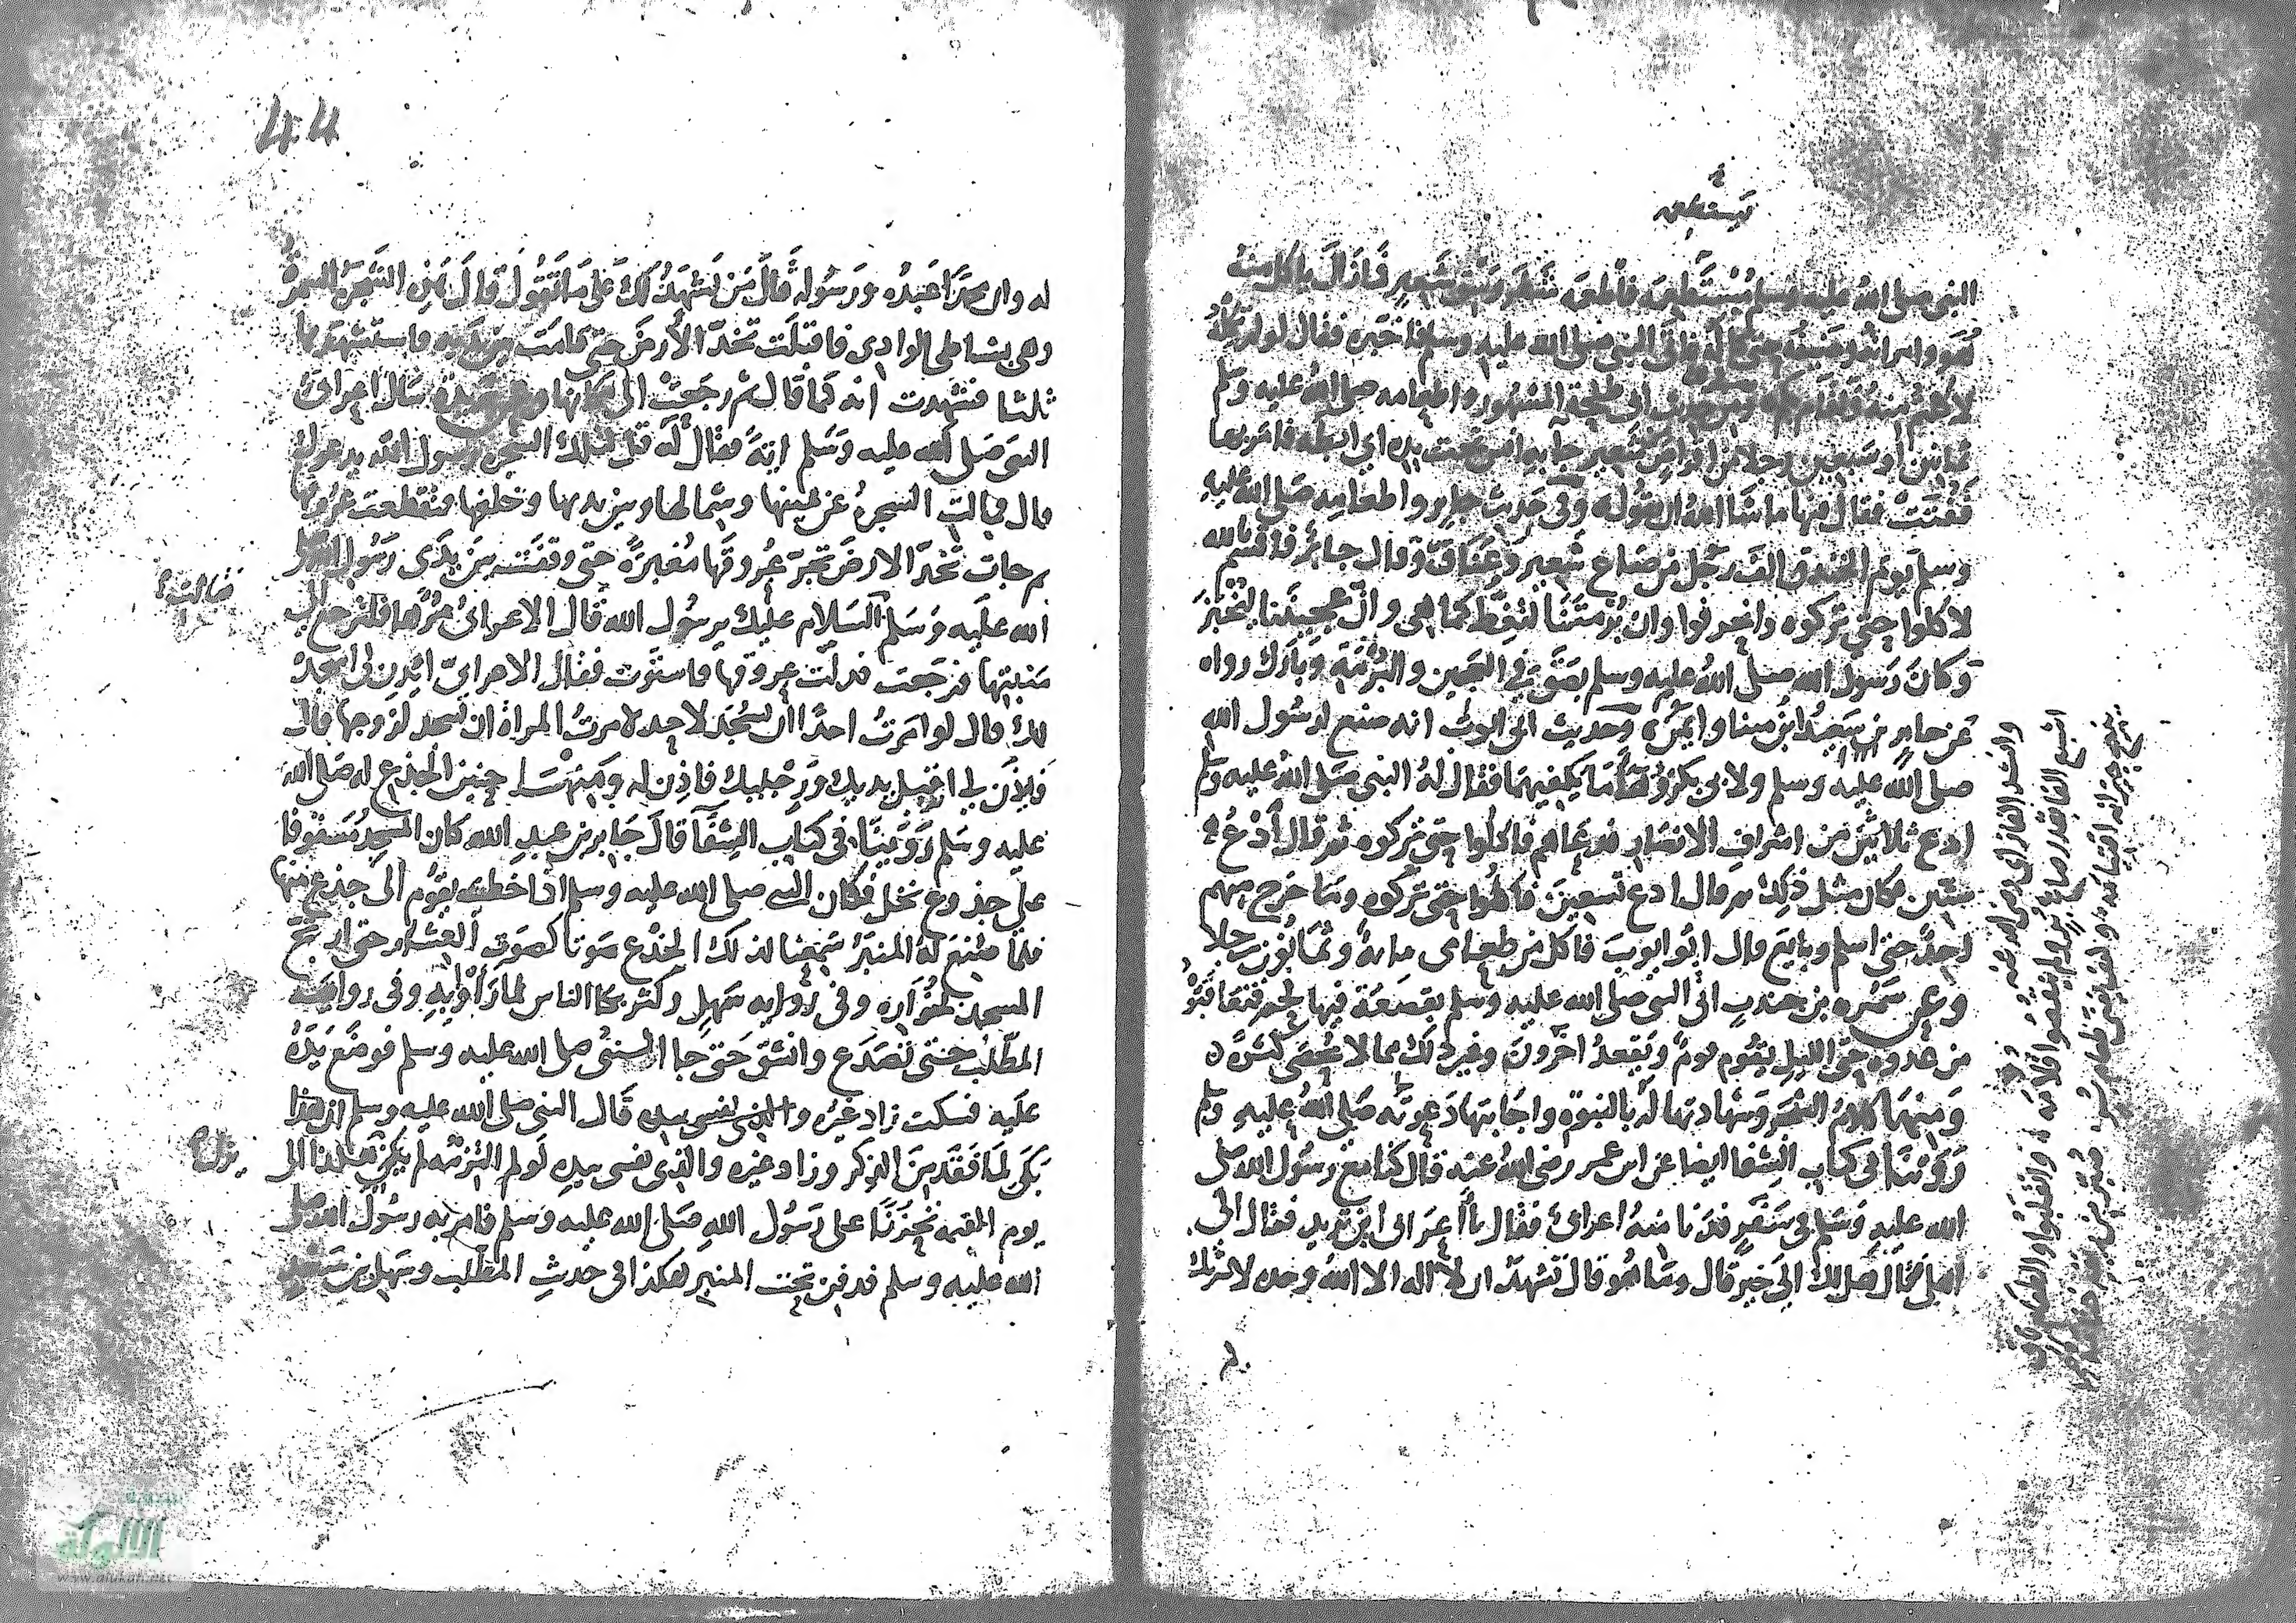 يستطعمه
النبي صلى الله عليه وسلم يستطعمه فاطعمه شطر وسق شعير فما زال ياكل منه
هو وامراته وضيفه حتى كاله فاتى النبي صلى الله عليه وسلم فاخبره فقال لو لم تكله
لاكلتم منه ولقام بكم ومن حديث ابي طلحة المشهور واطعامه صلى الله عليه وسلم
ثمانين او سبعين رجلا من اقراص شعير جآ بها انس تحت يده اي ابطه فامر بها
ففتت فقال فيها ما شا الله ان يقوله وفي حديث جابر واطعامه صلى الله عليه
وسلم يوم الخندق الف رجل من صاع شعير وعناق وقال جابر فاقسم بالله
لاكلوا حتى تركوه وانحرفوا وان برمتنا لتغط كما هي وان عجيننا ليخبز
وكان رسول الله صلى الله عليه وسلم بصق في العجين والبرمة وبارك رواه
عن جابر بن سعيد ابن مينا وايمن وحديث ابي ايوب انه صنع لرسول الله
صلى الله عليه وسلم ولابي بكر رضى ما يكفيهما فقال له النبي صلى الله عليه وسلم
ادع ثلاثين من اشراف الانصار فدعاهم فاكلوا حتى تركوه ثم قال ادع
ستين فكان مثل ذلك ثم قال ادع تسعين فاكلوا حتى تركوه وما خرج منهم
احد حتى اسلم وبايع قال ابو ايوب فاكل من طعامي مائة وثمانون رجلا
وعن سمره بن جندب اتى النبي صلى الله عليه وسلم بقصعة فيها لحم فتعاقبوا
من غدوه حتى الليل يقوم قوم ويقعد اخرون وغير ذلك مما لا يحصى كثره
ومنها كلام الشجر وشهادتها له بالنبوة واجابتها دعوته صلى الله عليه وسلم
روينا في كتاب الشفا ايضا عن ابن عمر رضي الله عنه قال كنا مع رسول الله صلى
الله عليه وسلم في سفر فدنا منه اعرابي فقال يا اعرابي اين تريد فقال الى
اهلي قال هل لك الى خير قال وما هو قال تشهد ان لا اله الا الله وحده لا شريك
له وان محمدا عبده ورسوله قال من يشهد لك على ما تقول قال هذه الشجرة السمرة
وهي بشاطئ الوادي فاقبلت تخد الارض حتى قامت بين يديه فاستشهدها
ثلثا فشهدت انه كما قال ثم رجعت الى مكانها وعن بريدة سال اعرابي
النبي صلى الله عليه وسلم اية فقال له قل لتلك الشجره رسول الله يدعوك
قال فمالت الشجرة عن يمينها وشمالها وبين يديها وخلفها فتقطعت عروقها
ثم جات تخد الارض تجر عروقها مغبرة حتى وقفت بين يدى رسول الله صلى
الله عليه وسلم السلام عليك يرسول الله قال الاعرابي مرها فلترجع الى
فقالت
منبتها فرجعت فدلت عروقها فاستوت فقال الاعرابي ايذن لي اسجد
لك قال لو امرت احدا ان يسجد لاحد لامرت المراة ان تسجد لزوجها قال
فاذن لي اقبل يديك ورجليك فاذن له ومنها حنين الجذع له صلى الله
عليه وسلم روينا في كتاب الشفا قال جابر بن عبد الله كان المسجد مسقوفا
على جذوع نخل فكان النبي صلى الله عليه وسلم اذا خطب يقوم الى جذع منها
فلما صنع له المنبر سمعنا لذلك الجذع صوتا كصوت العشار حتى ارتج
المسجد لخواره وفي رواية سهل وكثر بكا الناس لما راوا به وفي رواية
المطلب حتى تصدع وانشق حتى جا النبي صلى الله عليه وسلم فوضع يده
عليه فسكت زاد غيره قال النبي صلى الله عليه وسلم ان هذا
بكى لما فقد من الذكر وزاد غيره والذي نفسي بيده لو لم التزمه لم يزل هكذا الى
يزل
يوم القيمة تحزنا على رسول الله صلى الله عليه وسلم فامر به رسول الله صلى
الله عليه وسلم فدفن تحت المنبر هكذا في حديث المطلب وسهل بن سعد
الألوكة
www.alukah.net